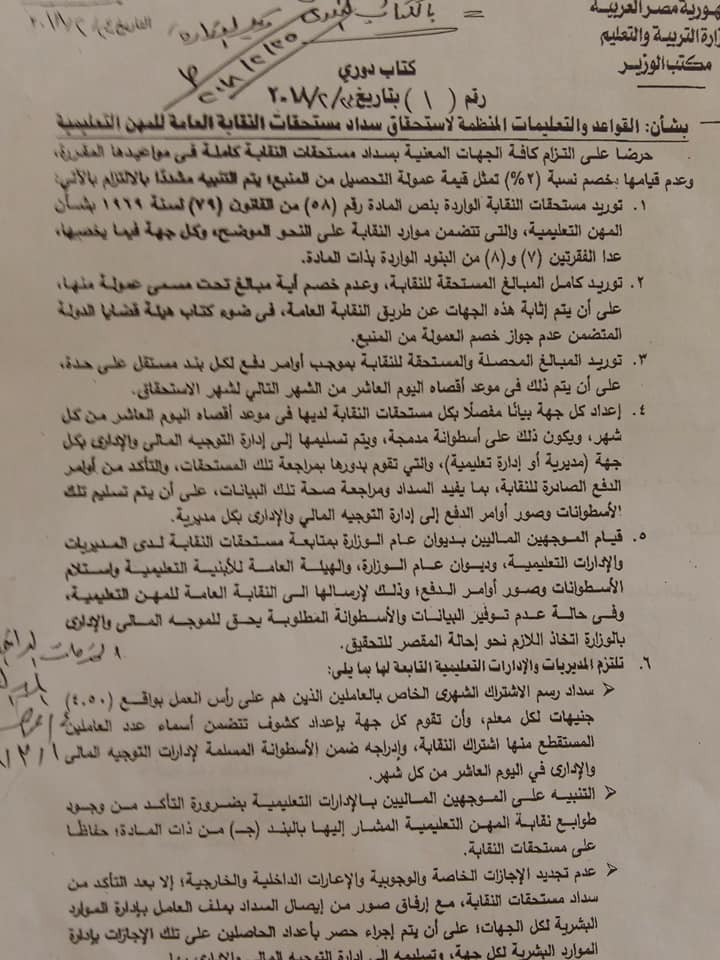 جمهورية مصر العربية
وزارة التربية والتعليم
مكتب الوزير
كتاب دوري
رقم (١) بتاريخ /٢/٢٠١٨
بشأن: القواعد والتعليمات المنظمة لاستحقاق سداد مستحقات النقابة العامة للمهن التعليمية
حرضا على التزام كافة الجهات المعنية بسداد مستحقات النقابة كاملة فى مواعيدها المقررة،
وعدم قيامها: بخصم نسبة (٢%) تمثل قيمة عمولة التحصيل من المنبع؛ يتم التنبيه مشددًا بالالتزام بالآتي:
١. توريد مستحقات النقابة الواردة بنص المادة رقم (٥٨) من القانون (٧٩) لسنة ١٩٦٩ بشأن
المهن التعليمية، والتى تتضمن موارد النقابة على النحو الموضح، وكل جهة فيما يخصها،
عدا الفقرتين (٧) و(٨) من البنود الواردة بذات المادة.
٢. توريد كامل المبالغ المستحقة للنقابة، وعدم خصم أية مبالغ تحت مسمى عمولة منها،
على أن يتم إثابة هذه الجهات عن طريق النقابة العامة، فى ضوء كتاب هيئة قضايا الدولة
المتضمن عدم جواز خصم العمولة من المنبع.
٣. توريد المبالغ المحصلة والمستحقة للنقابة بموجب أوامر دفع لكل بند مستقل على حدة،
على أن يتم ذلك فى موعد أقصاه اليوم العاشر من الشهر التالي لشهر الاستحقاق.
٤. إعداد كل جهة بيانًا مفصلًا بكل مستحقات النقابة لديها فى موعد أقصاه اليوم العاشر من كل
شهر، ويكون ذلك على أسطوانة مدمجة، ويتم تسليمها إلى إدارة التوجيه المالى والإدارى بكل
جهة (مديرية أو إدارة تعليمية)، والتي تقوم بدورها بمراجعة تلك المستحقات، والتأكد من أوامر
الدفع الصادرة للنقابة، بما يفيد السداد ومراجعة صحة تلك البيانات، على أن يتم تسليم تلك
الأسطوانات وصور أوامر الدفع إلى إدارة التوجيه المالي والإدارى بكل مديرية.
٥. قيام الموجهين الماليين بديوان عام الوزارة بمتابعة مستحقات النقابة لدى المديريات
والإدارات التعليمية، وديوان عام الوزارة، والهيئة العامة للأبنية التعليمية وإستلام
الأسطوانات وصور أوامر الدفع؛ وذلك لإرسالها الى النقابة العامة للمهن التعليمية،
وفى حالة عدم توفير البيانات والأسطوانة المطلوبة يحق للموجه المالى والإدارى
بالوزارة اتخاذ اللازم نحو إحالة المقصر للتحقيق.
٦. تلتزم المديريات والإدارات التعليمية التابعة لها بما يلى:
➢ سداد رسم الاشتراك الشهرى الخاص بالعاملين الذين هم على رأس العمل بواقع (٤.٥٠)
جنيهات لكل معلم، وأن تقوم كل جهة بإعداد كشوف تتضمن أسماء عدد العاملين
المستقطع منها اشتراك النقابة، وإدراجه ضمن الأسطوانة المسلمة لإدارات التوجيه المالى
والإدارى في اليوم العاشر من كل شهر.
➢ التنبيه على الموجهين الماليين بالإدارات التعليمية بضرورة التأكد من وجود
طوابع نقابة المهن التعليمية المشار إليها بالبند (جـ) من ذات المادة؛ حفاظًا
على مستحقات النقابة.
➢ عدم تجديد الإجازات الخاصة والوجوبية والإعارات الداخلية والخارجية؛ إلا بعد التأكد من
سداد مستحقات النقابة، مع إرفاق صور من إيصال السداد بملف العامل بإدارة الموارد
البشرية لكل الجهات؛ على أن يتم إجراء حصر بأعداد الحاصلين على تلك الإجازات بإدارة
الموارد البشرية لكل جهة، وتسليمه إلى إدارة التوجيه المالى والإدارى بها.